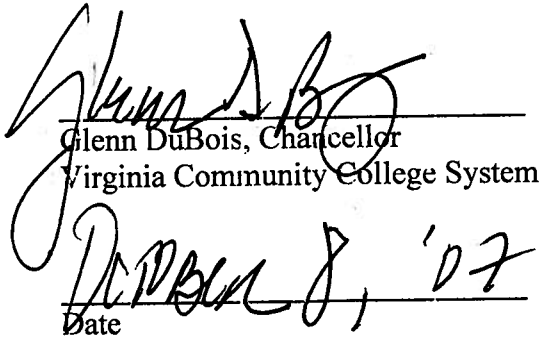 Glenn
Glenn DuBois, Chancellor
Virginia Community College System
October 8, '07
Date